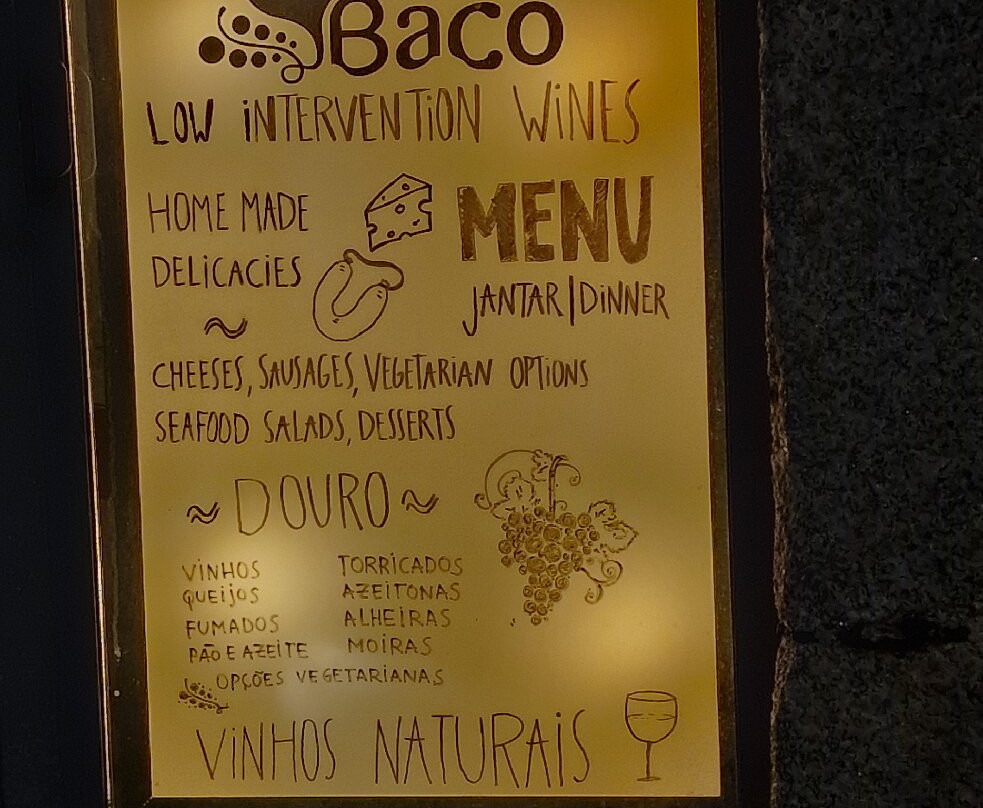 Baco
LOW INTERVENTION WINES
HOME MADE
DELICACIES
MENU
JANTAR|DINNER
CHEESES, SAUSAGES, VEGETARIAN OPTIONS
SEAFOOD SALADS, DESSERTS
~ DOURO ~
VINHOS
QUEIJOS
FUMADOS
PÃO E AZEITE
TORRICADOS
AZEITONAS
ALHEIRAS
MOIRAS
OPÇÕES VEGETARIANAS
VINHOS NATURAIS